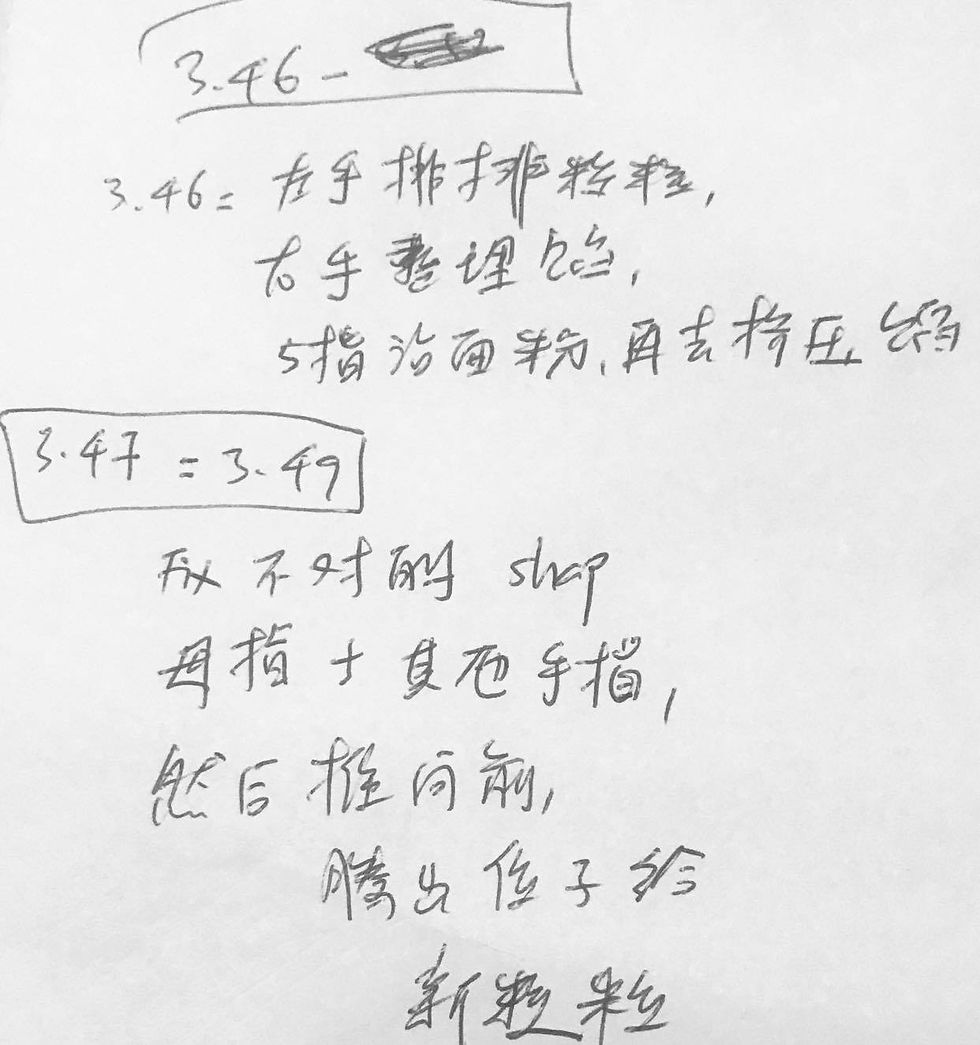 3.46 -
3.46 = 左手排排粒粒,
右手整理馅,
5指沾面粉,再去挤压馅
3.47 = 3.49
Fix 不对的 shap
母指 + 其他手指,
然后推向前,
腾出位子给
新粒粒